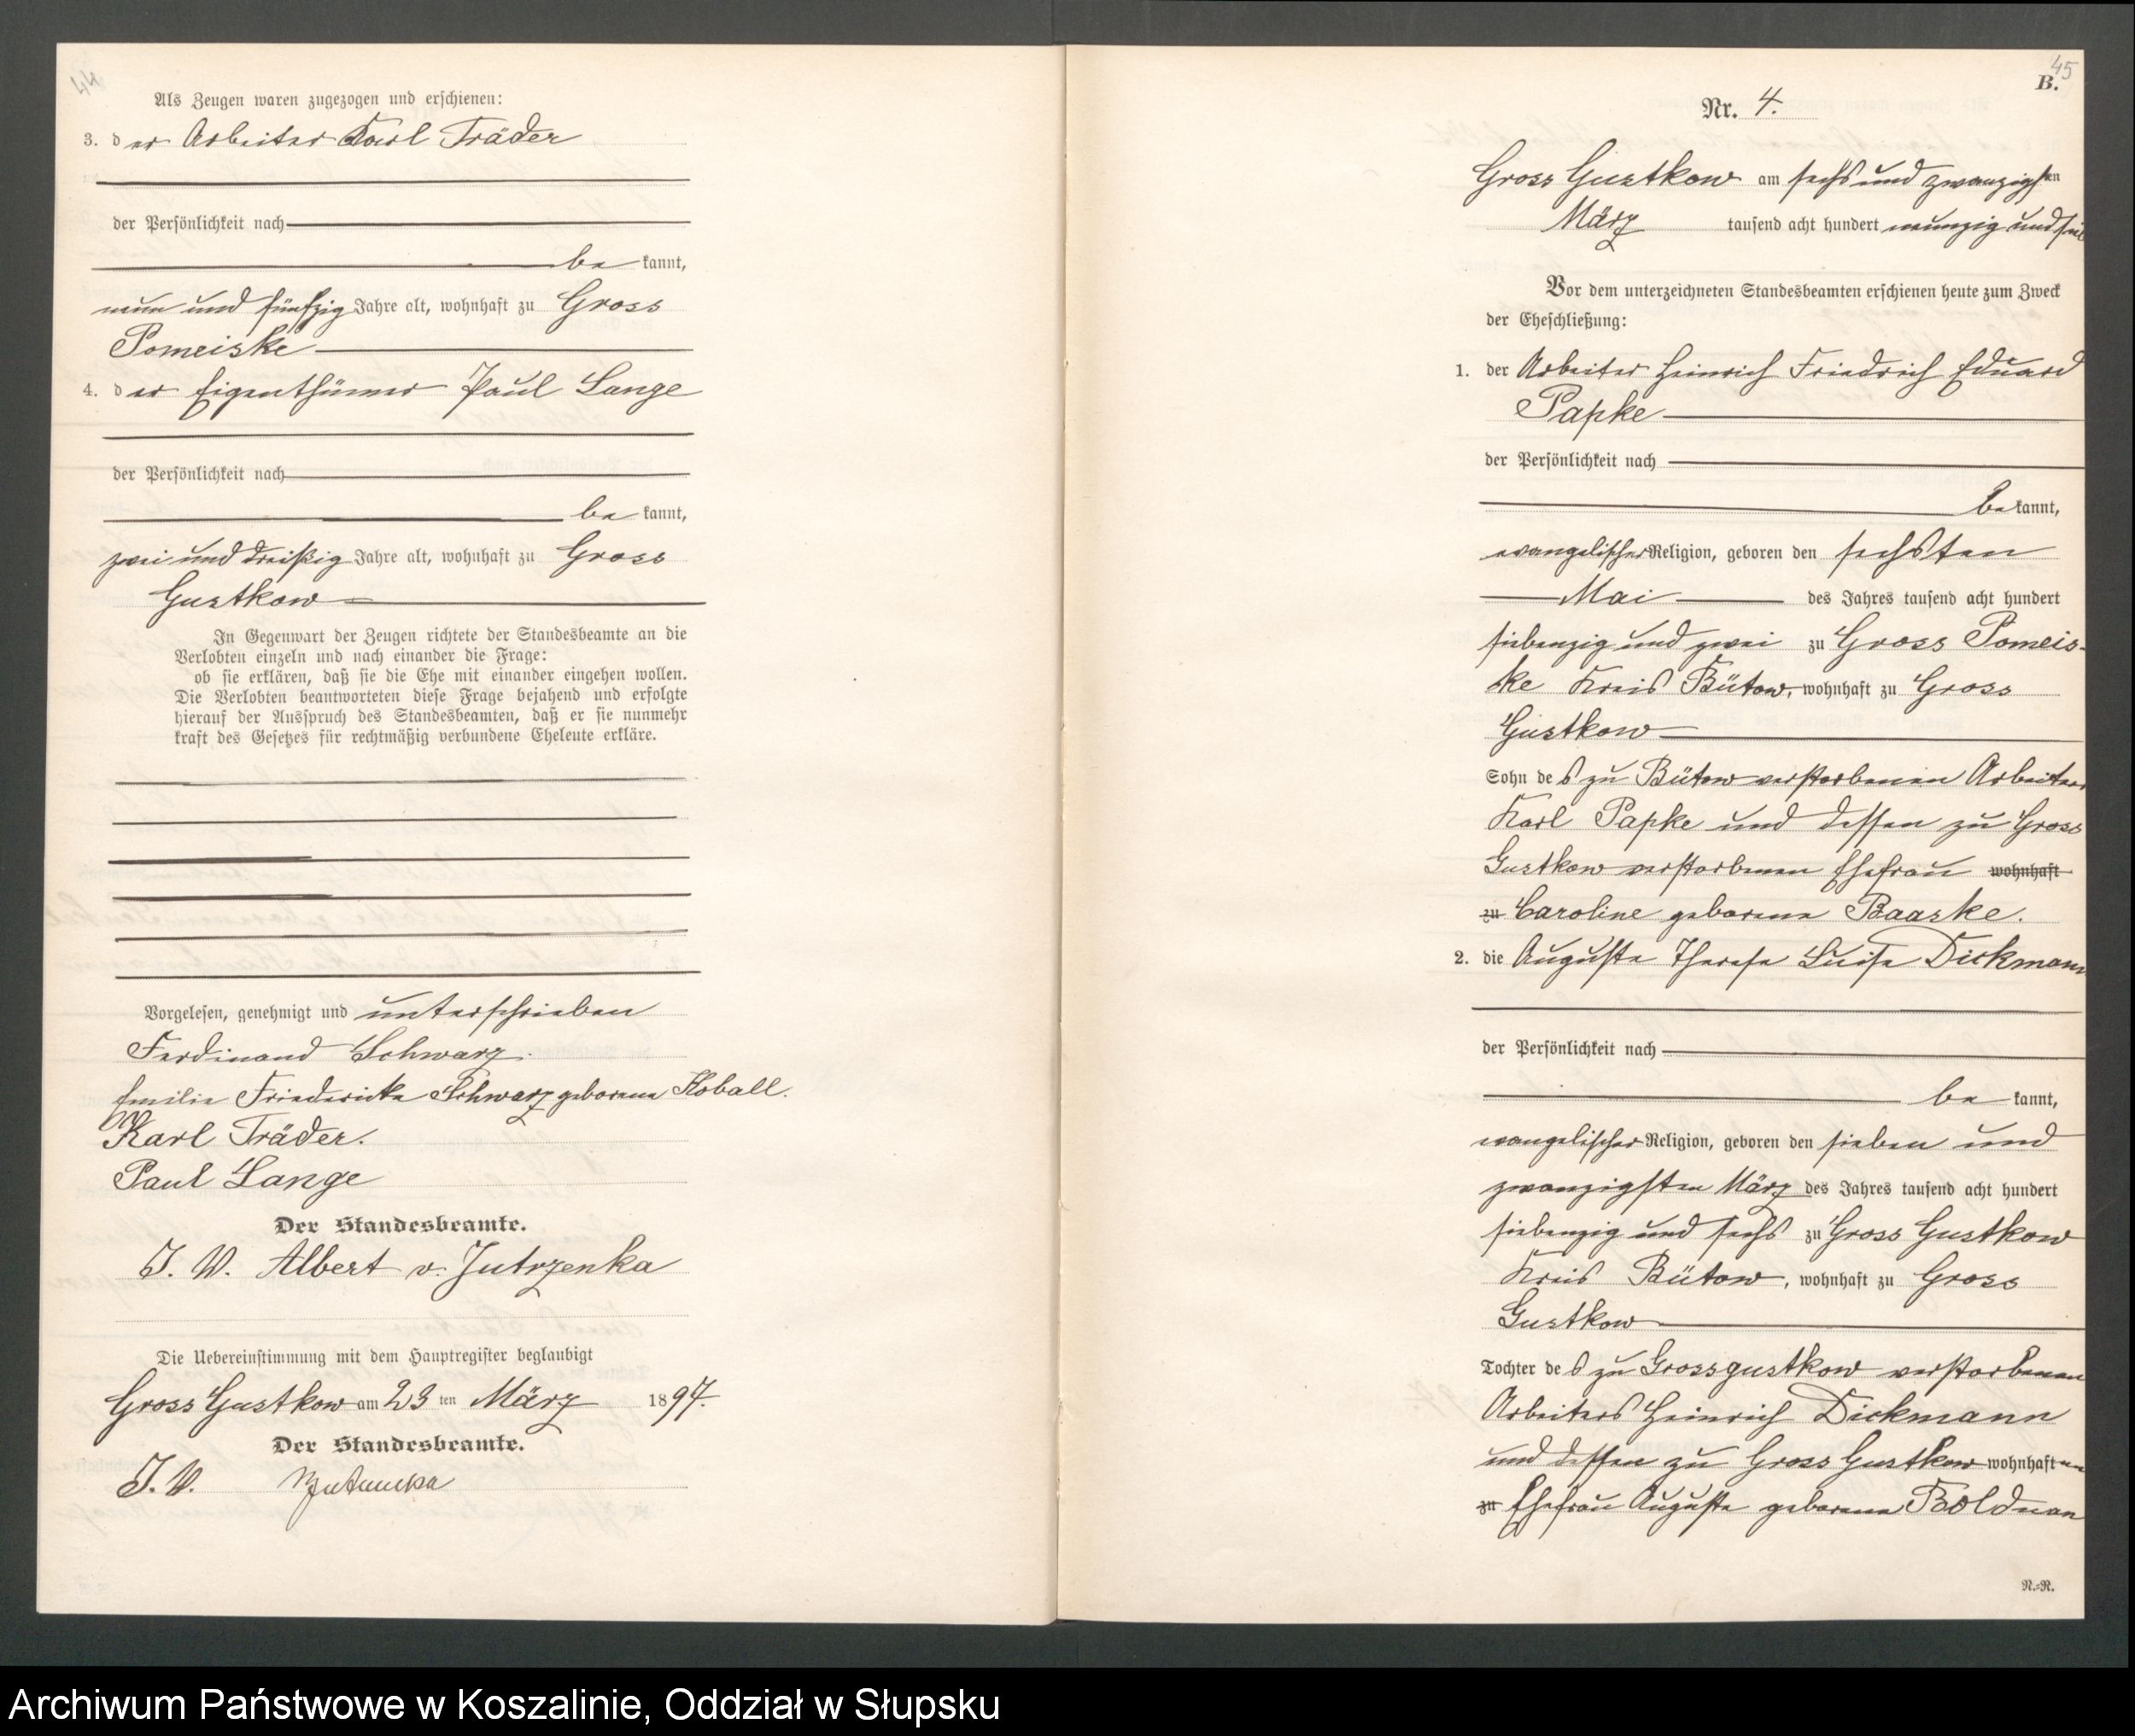 44
Als Zeugen waren zugezogen und erschienen:
3. der Arbeiter Karl Träder
der Persönlichkeit nach
be kannt,
neun und fünfzig Jahre alt, wohnhaft zu Gross
Pomeiske
4. der Eigenthümer Paul Lange
der Persönlichkeit nach
be kannt,
zwei und dreißig Jahre alt, wohnhaft zu Gross
Gustkow
In Gegenwart der Zeugen richtete der Standesbeamte an die
Verlobten einzeln und nach einander die Frage:
ob sie erklären, daß sie die Ehe mit einander eingehen wollen.
Die Verlobten beantworteten diese Frage bejahend und erfolgte
hierauf der Ausspruch des Standesbeamten, daß er sie nunmehr
kraft des Gesetzes für rechtmäßig verbundene Eheleute erkläre.
Vorgelesen, genehmigt und unterschrieben
Ferdinand Schwarz.
Emilie Friedericke Schwarz geborene Koball.
Karl Träder.
Paul Lange
Der Standesbeamte.
J. V. Albert v. Jutrzenka
Die Uebereinstimmung mit dem Hauptregister beglaubigt
Gross Gustkow am 23 ten März 1897.
Der Standesbeamte.
J. V.
45
B.
Nr. 4.
Gross Gustkow am sechs und zwanzigsten
März tausend acht hundert neunzig und sieb
Vor dem unterzeichneten Standesbeamten erschienen heute zum Zweck
der Eheschließung:
1. der Arbeiter Heinrich Friedrich Eduard
Papke
der Persönlichkeit nach
be kannt,
evangelischer Religion, geboren den sechsten
Mai des Jahres tausend acht hundert
siebenzig und zwei zu Gross Pomeis-
ke Kreis Bütow, wohnhaft zu Gross
Gustkow
Sohn des zu Bütow verstorbenen Arbeiters
Karl Papke und dessen zu Gross
Gustkow verstorbenen Ehefrau wohnhaft
zu Caroline geborene Baaske.
2. die Auguste Therese Luise Dickmann
der Persönlichkeit nach
be kannt,
evangelischer Religion, geboren den sieben und
zwanzigsten März des Jahres tausend acht hundert
siebenzig und sechs zu Gross Gustkow
Kreis Bütow, wohnhaft zu Gross
Gustkow
Tochter des zu Grossgustkow verstorbenen
Arbeiters Heinrich Dickmann
und dessen zu Gross Gustkow wohnhaften
zu Ehefrau Auguste geborene Bolduan
N.=R.
Archiwum Państwowe w Koszalinie, Oddział w Słupsku